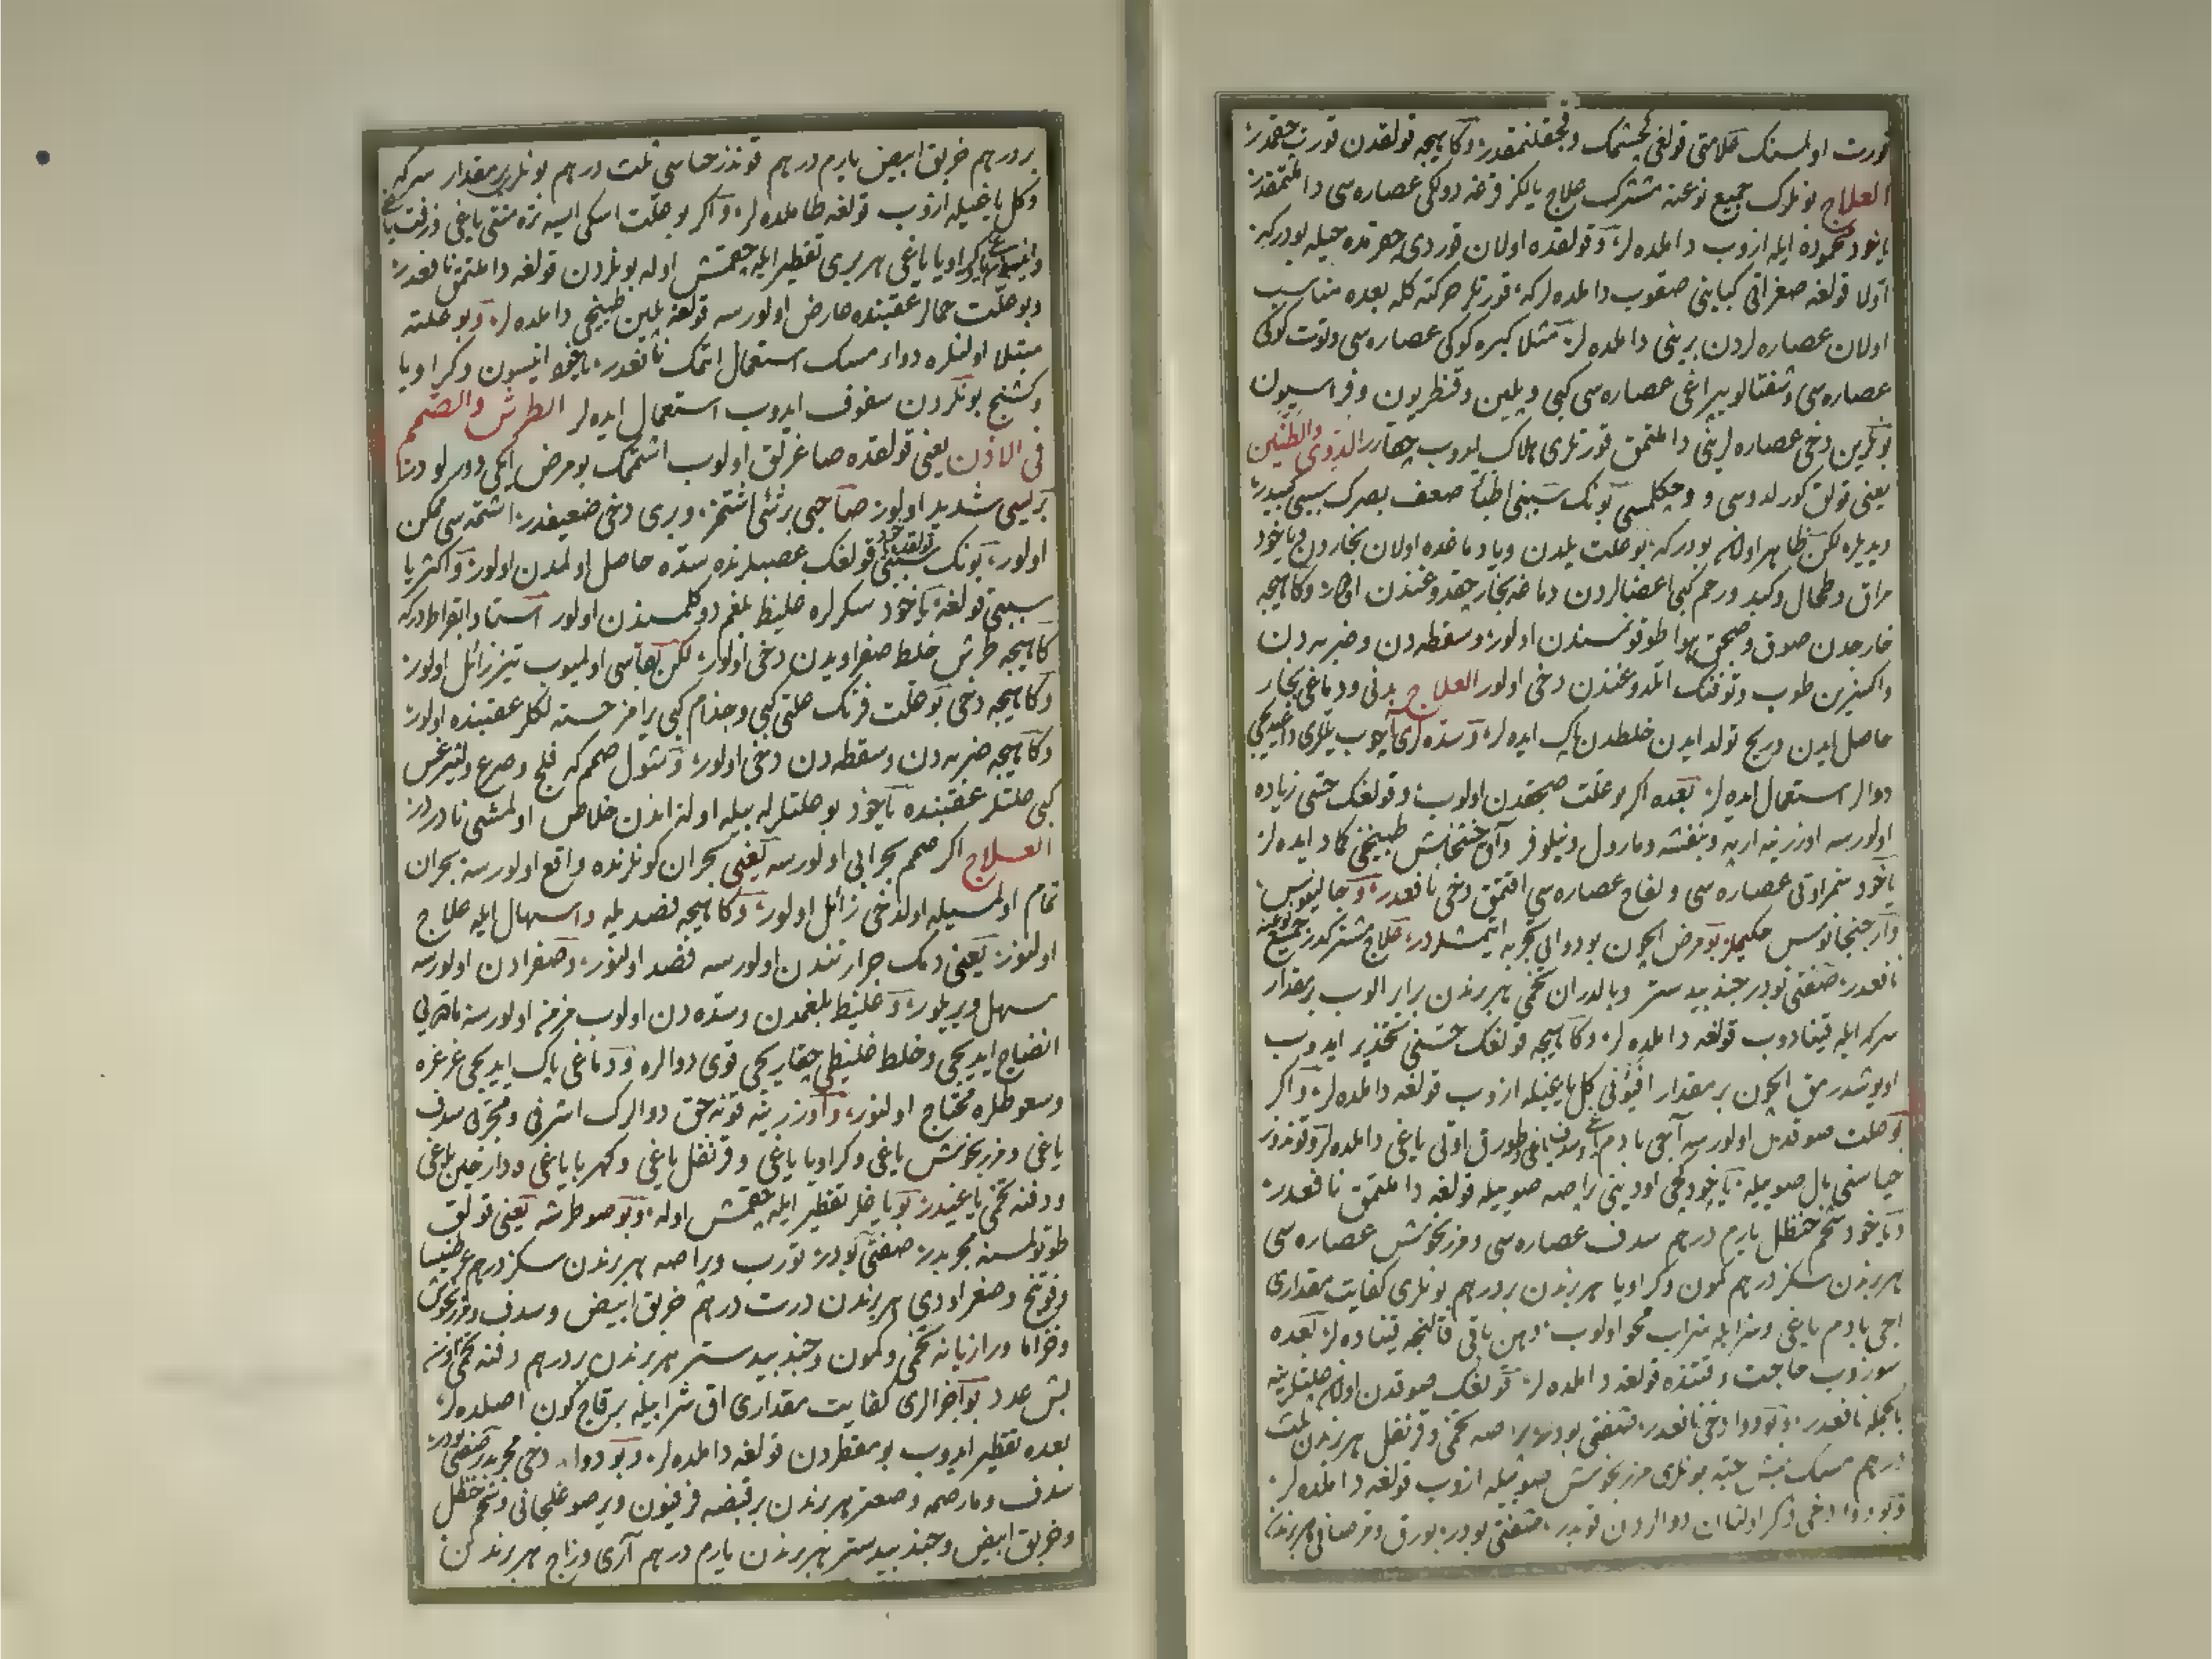 قورت اولمسنك علامتی قولغی كجشمك وقجقلنمقدر وكاهیجه قولقدن قورت چقمقدر
العلاج بونلرك جمیع نوعنه مشترك علاج یالكز قرفه دولكی عصاره سی دامتمقدر
یاخود محموده ایله ازوب دامله لر وقولقده اولان قوردی چقرتمده حیله بودركه
اولا قولغه صغر اتی كبابنی صقوب دامله لركه قورتلر حركته كله بعده مناسب
اولان عصاره لردن برینی دامله لر مثلا كبره كوكی عصاره سی وتوت كوكی
عصاره سی وشفتالو یپراغی عصاره سی كبی ویلین وقنطریون وفراسیون
بونلرین دخی عصاره لرینی دامتمق قورتلری هلاك ایدوب چقارر الدوی والطنین
یعنی قولق كورلدوسی و وچكلمسی بونك سببنی اطبا ضعف بصرك سببی كبیدر
دیدیلر لكن ظاهر اولان بودركه بو علت یلدن ویا دماغده اولان بخاردن ویاخود
مراق وطحال وكبد ورحم كبی اعضالردن دماغه بخار چقدوغندن اولور وكاهیجه
خارجدن صوق وصجق هوا طوقونسندن اولور وسقطه دن وضربه دن
واكثرین طوب وتوفنك اتلدوغندن دخی اولور العلاج بدنی ودماغی بخار
حاصل ایدن وریح تولد ایدن خلطدن پاك ایده لر وسده لری آچوب یللری داغیدیجی
دوالر استعمال ایده لر بعده اكر بو علت صجقدن اولوب وقولغك حسی زیاده
اولورسه اوزرینه ارپه وبنفشه ومارول ونیلوفر واق خشخاش طبیخی كماد ایده لر
یاخود سمزاوتی عصاره سی ولفاح عصاره سی اقتمق دخی نافعدر وجالینوس
وارجنجانوس حكیملر بو مرض ایچون بو دوایی تجربه ایتمشلردر علاج مشتركدر جمیع نوعنه
نافعدر صفتی بودر جندبیدستر وبالدران تخمی هر برندن برابر الوب بر مقدار
سركه ایله قینادوب قولغه دامله لر وكاهیجه قولغك حسنی تخذیر ایدوب
اویوشدرمق ایچون بر مقدار افیونی كل یاغیله ازوب قولغه دامله لر واكر
بو علت صوقدن اولورسه آجی بادم یاغی وسدف یاغی وطورق اوتی یاغی دامله لر وقوندز
حیاسنی بال صوییله یاخود كچی اودینی پراصه صوییله قولغه دامتمق نافعدر
ویاخود شحم حنظل یارم درهم سدف عصاره سی ومرزنجوش عصاره سی
هر برندن سكز درهم كمون وكراویا هر برندن بر درهم بونلری كفایت مقداری
اجی بادم یاغی وشرابله شراب محو اولوب دهن باقی قالنجه قیناده لر بعده
سوزوب حاجت وقتنده قولغه دامله لر قولغك صوقدن اولان علتلرینه
بالجمله نافعدر وبو دوا دخی نافعدر صفتی بودر پراصه تخمی وقرنفل هر برندن ثلث
درهم مسك بش حبه بونلری مرزنجوش صوییله ازوب قولغه دامله لر
وبو دوا دخی ذكر اولنان دوالردن قویدر صفتی بودر بورق وقرصعانی هر برندن
بر درهم خربق ابیض یارم درهم قوندز حیاسی ثلث درهم بونلری بر مقدار سركه
وكل یاغیله ازوب قولغه طامله لر واكر بو علت اسكی ایسه نره متقی یاغی وزفت یاغی
وانیسون یاغی وكراویا یاغی هر بری تقطیر ایله چقمش اوله بونلردن قولغه دامتمق نافعدر
وبو علت حمالر عقبنده عارض اولورسه قولغه یلین طبیخی دامله لر وبو علته
مبتلا اولنلره دواء مسك استعمال اتمك نافعدر یاخود انیسون وكراویا
وكشنیج بونلردن سفوف ایدوب استعمال ایده لر الطرش والصمم
فی الاذن یعنی قولقده صاغرلق اولوب اشتممك بو مرض ایكی دورلودر
بریسی شدید اولور صاحبی بر شی اشتمز وبری دخی ضعیفدر اشتمه سی ممكن
اولور بونك سببی قولغك عصبلرنده سده حاصل اولمدن اولور واكثریا
سببی قولغه یاخود سكرلره غلیظ بلغم دوكلمسندن اولور استاد ابقراط دركه
كاهیجه طرش خلط صفراویدن دخی اولور لكن بقاسی اولمیوب تیز زائل اولور
وكاهیجه دخی بو علت فرنك علتی كبی وجذام كبی یرامز خسته لكلر عقبنده اولور
وكاهیجه ضربه دن وسقطه دن دخی اولور وشول صمم كه فلج وصرع ولیثرغس
كبی علتلر عقبنده یاخود بو علتلر ایله بیله اولنه اندن خلاص اولمشی نادردر
العلاج اكر صمم بحرانی اولورسه یعنی بحران كونلرنده واقع اولورسه بحران
تمام اولمسیله اولدخی زائل اولور وكاهیجه فصد ایله واسهال ایله علاج
اولنور یعنی دمك حرارتندن اولورسه فصد اولنور وصفرادن اولورسه
مسهل ویریلور وغلیظ بلغمدن وسده دن اولوب مزمن اولورسه ماده یی
انضاج ایدیجی وخلط غلیظی چقاریجی قوی دوالره ودماغی پاك ایدیجی غرغره
وسعوطلره محتاج اولنور واوزرینه قونه جق دوالرك اشرفی ومجربی سدف
یاغی ومرزنجوش یاغی وكراویا یاغی وقرنفل یاغی وكهربا یاغی ودارچین یاغی
ودفنه تخمی یاغیدر بو یاغلر تقطیر ایله چقمش اوله وبو صو طرشه یعنی قولق
طوتولمسنه مجربدر صفتی بودر تورب وپراصه هر برندن سكز درهم عرطنیثا
وفوتنج وصغر اودی هر برندن درت درهم خربق ابیض وسدف ومرزنجوش
وخزاما ورازیانه تخمی وكمون وجندبیدستر هر برندن بر درهم دفنه تخمی اون
بش عدد بو اجزالری كفایت مقداری اق شرابیله بر قاچ كون اصلده لر
بعده تقطیر ایدوب بو مقطردن قولغه دامله لر وبو دوا دخی مجربدر صفتی بودر
سدف ومارصمه وصعتر هر برندن بر قبضه فرفیون ویرصوغلجانی وشحم حنظل
وخربق ابیض وجندبیدستر هر برندن یارم درهم آزی وزاج هر برندن